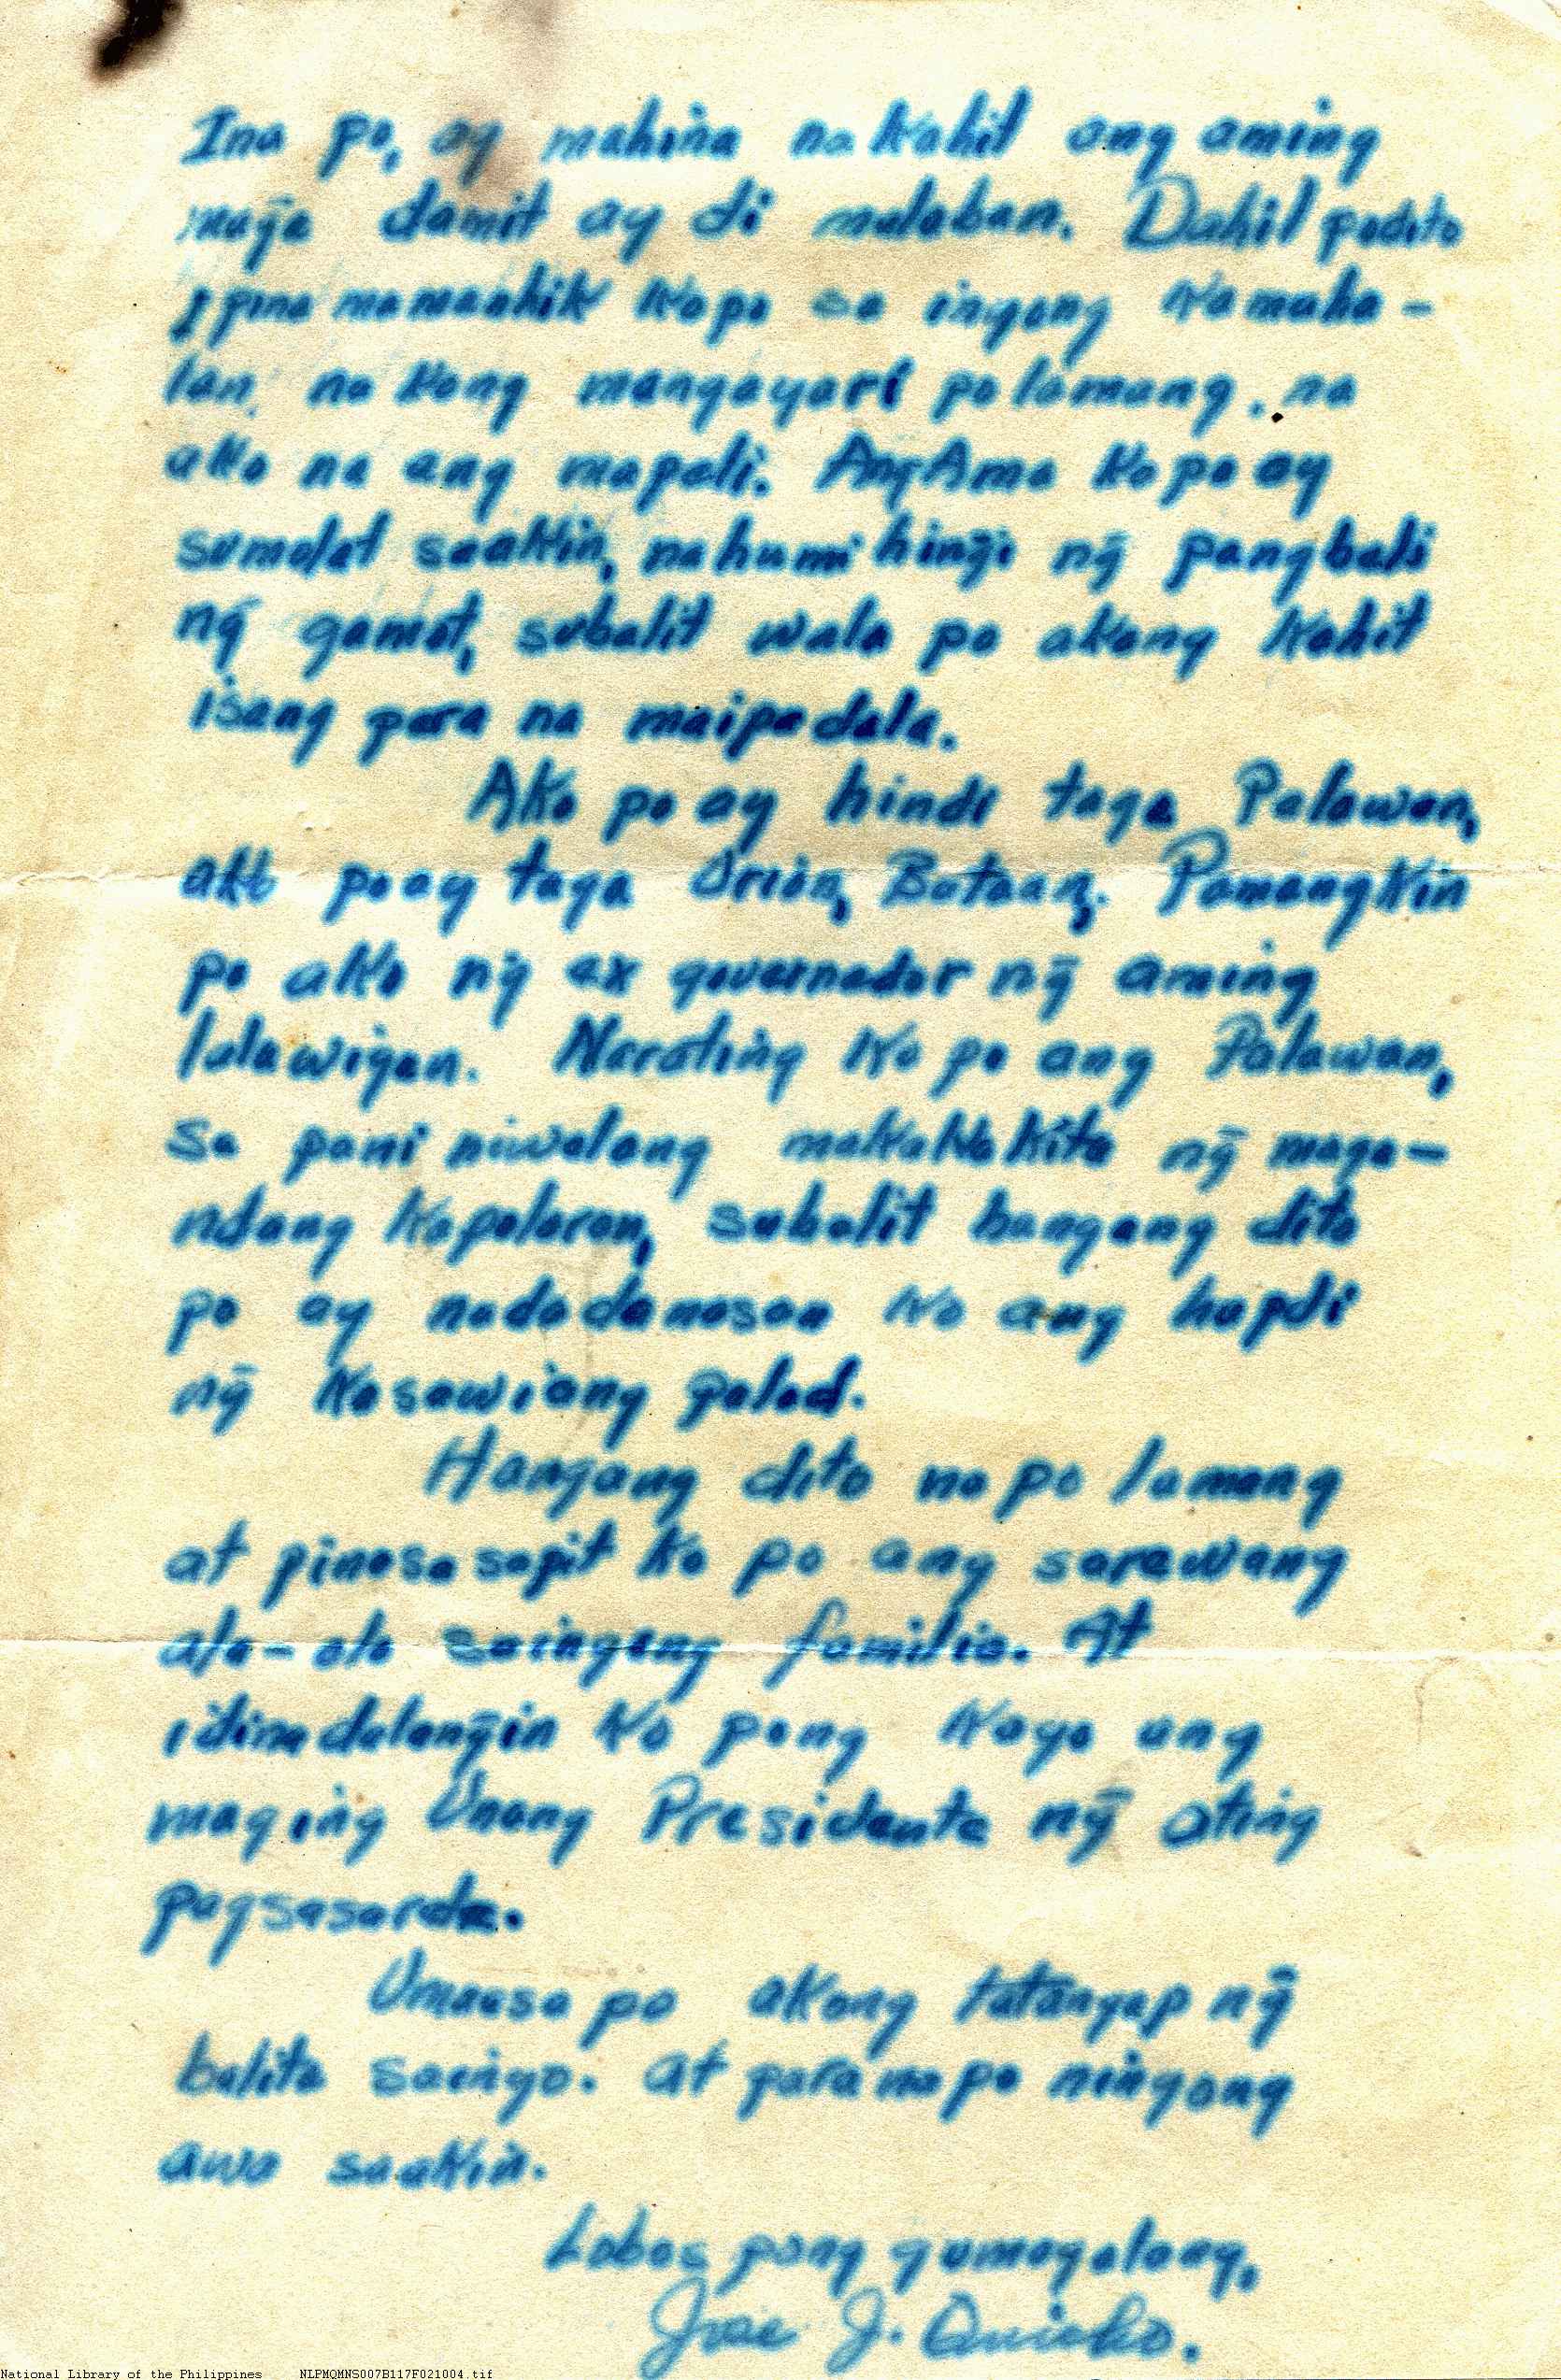 Ina po, ay mahina na kahit ang aming
mga damit ay di malaban. Dahil podito
Ipina mamanhik kopo sa inyong kamaha-
lan, na kong mangayari po lamang. na
ako na ang mapali. Ang Ama ko po ay
sumolat saakin, na humi hingi ng̃ pangbali
ng̃ gamot, subalit wala po akong kahit
isang para na maipadala.
Ako po ay hindi taga Palawan,
ako poay taga Orion, Bataan. Pamangkin
po ako ng̃ ex governador ng̃ aming
lalawigan. Narating ko po ang Palawan,
sa pani niwalang makakakita ng̃ maga-
ndang kapalaran, subalit bangang dito
po ay nadadanasan ko ang hapdi
ng̃ kasawiang palad.
Hangang dito na po lamang
at pinasasapit ko po ang sarewang
ala-ala sainyong familia. At
idinadalang̃in ko pong kayo ang
maging Unang Presidente ng̃ ating
pagsasarele.
Umaasa po akong tatangap ng̃
balita sainyo. at para na po ninyong
awa saakin.
Lobos pong gumagalang,
Jose J.
National Library of the Philippines NLPMQMNS007B117F021004.tif